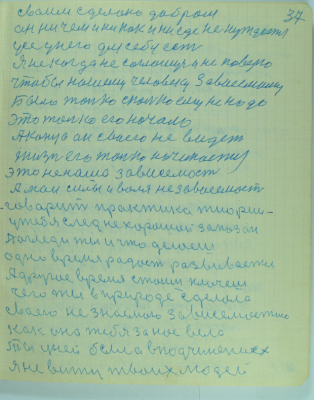 37
своим сделано добром
он ни чем и ни как и ни где не нуждается
усе у него для себе есть
Я не когда не соглошуся не поверю
чтобы нашему человеку зависимому
было только сколько ему не надо
это только его начало
А конца он своего не видет
жизнь его только начинается
это не наша зависемост
А моя сила и воля не зависемост
говарит практика теории
у тебя след не хороший
погледи ты и что делаем
одно время радост развивается
А другое время стоим плачем
чего ты в природе сделала
своею не зависемостию
как она тебя за ное вела
Ты у ней была в подчинениех
Я не вижу твоих людей